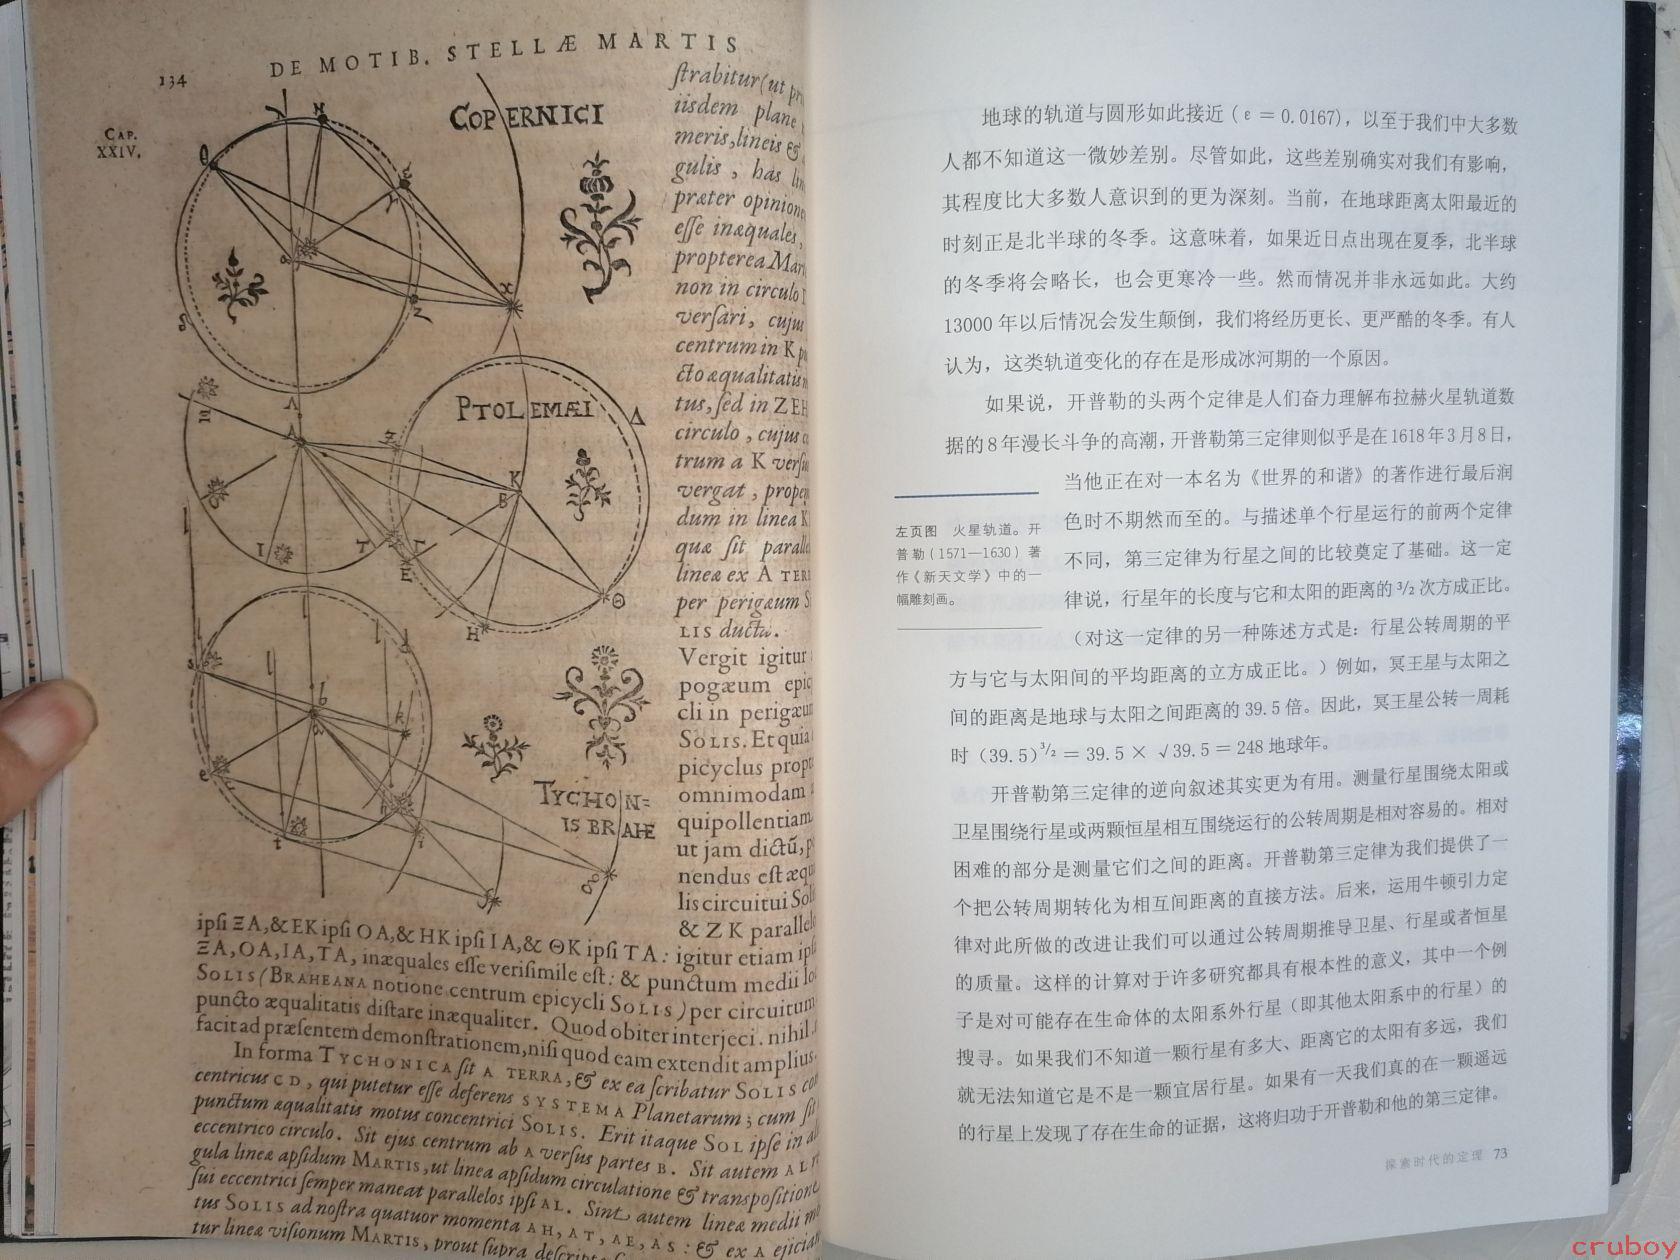 134
DE MOTIB. STELLÆ MARTIS
CAP.
XXIV.
COPERNICI
PTOLEMÆI
TYCHON=
IS BRAHE
ſtrabitur (ut
iisdem plane
meris, lineis &
gulis, has
præter opinione
eſſe inæquales,
propterea
non in circulo
verſari, cujus
centrum in K
cto æqualitatis
tus, ſed in ZEH
circulo, cujus
trum a K verſus
vergat,
dum in linea
quæ ſit
lineæ ex A TERR
per perigæum
LIS ducta.
Vergit igitur
pogæum
cli in perigæum
SOLIS. Et quia
picyclus
omnimodam
quipollentiam
ut jam dictũ,
nendus eſt
lis circuitui
& ZK
ipſi ΞA, & EK ipſi OA, & HK ipſi IA, & ΘK ipſi TA: igitur etiam
ΞA, OA, IA, TA, inæquales eſſe veriſimile eſt: & punctum medii
SOLIS (BRAHEANA notione centrum epicycli SOLIS) per circuitum
puncto æqualitatis diſtare inæqualiter. Quod obiter interjeci. nihil
facit ad præſentem demonſtrationem, niſi quod eam extendit amplius.
In forma TYCHONICA ſit A TERRA, & ex ea ſcribatur SOLIS
centricus CD, qui putetur eſſe deferens SYSTEMA Planetarum; cum ſit
punctum æqualitatis motus concentrici SOLIS. Erit itaque SOL ipſe in
eccentrico circulo. Sit ejus centrum ab A verſus partes B. Sit autem
gula lineæ apſidum MARTIS, ut linea apſidum circulatione & transpoſitione
ſui eccentrici ſemper maneat parallelos ipſi AL. Sint autem lineæ medii
tus SOLIS ad noſtra quatuor momenta AH, AT, AE, AS: & ex A
tur lineæ viſionum MARTIS, prout ſupra
地球的轨道与圆形如此接近（ε = 0.0167），以至于我们中大多数
人都不知道这一微妙差别。尽管如此，这些差别确实对我们有影响，
其程度比大多数人意识到的更为深刻。当前，在地球距离太阳最近的
时刻正是北半球的冬季。这意味着，如果近日点出现在夏季，北半球
的冬季将会略长，也会更寒冷一些。然而情况并非永远如此。大约
13000 年以后情况会发生颠倒，我们将经历更长、更严酷的冬季。有人
认为，这类轨道变化的存在是形成冰河期的一个原因。
如果说，开普勒的头两个定律是人们奋力理解布拉赫火星轨道数
据的8年漫长斗争的高潮，开普勒第三定律则似乎是在1618年3月8日，
当他正在对一本名为《世界的和谐》的著作进行最后润
色时不期然而至的。与描述单个行星运行的前两个定律
不同，第三定律为行星之间的比较奠定了基础。这一定
律说，行星年的长度与它和太阳的距离的 3/2 次方成正比。
（对这一定律的另一种陈述方式是：行星公转周期的平
方与它与太阳间的平均距离的立方成正比。）例如，冥王星与太阳之
间的距离是地球与太阳之间距离的 39.5 倍。因此，冥王星公转一周耗
时（39.5）3/2 = 39.5 × √39.5 = 248 地球年。
开普勒第三定律的逆向叙述其实更为有用。测量行星围绕太阳或
卫星围绕行星或两颗恒星相互围绕运行的公转周期是相对容易的。相对
困难的部分是测量它们之间的距离。开普勒第三定律为我们提供了一
个把公转周期转化为相互间距离的直接方法。后来，运用牛顿引力定
律对此所做的改进让我们可以通过公转周期推导卫星、行星或者恒星
的质量。这样的计算对于许多研究都具有根本性的意义，其中一个例
子是对可能存在生命体的太阳系外行星（即其他太阳系中的行星）的
搜寻。如果我们不知道一颗行星有多大、距离它的太阳有多远，我们
就无法知道它是不是一颗宜居行星。如果有一天我们真的在一颗遥远
的行星上发现了存在生命的证据，这将归功于开普勒和他的第三定律。
左页图　火星轨道。开
普勒（1571—1630）著
作《新天文学》中的一
幅雕刻画。
探索时代的定理 73
cruboy